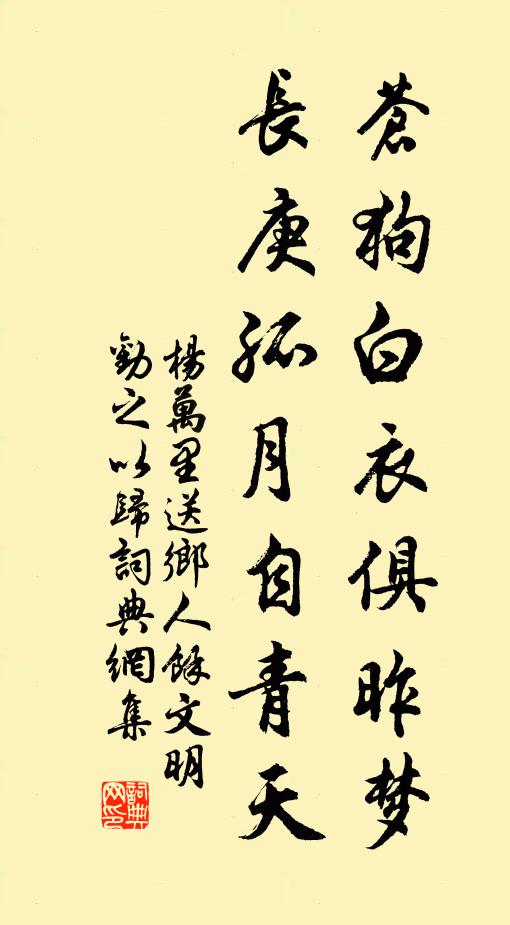 蒼狗白衣俱昨梦
長庚孤月自青天
楊萬里送鄉人餘文明
勸之以歸詞典網集
詞典网印